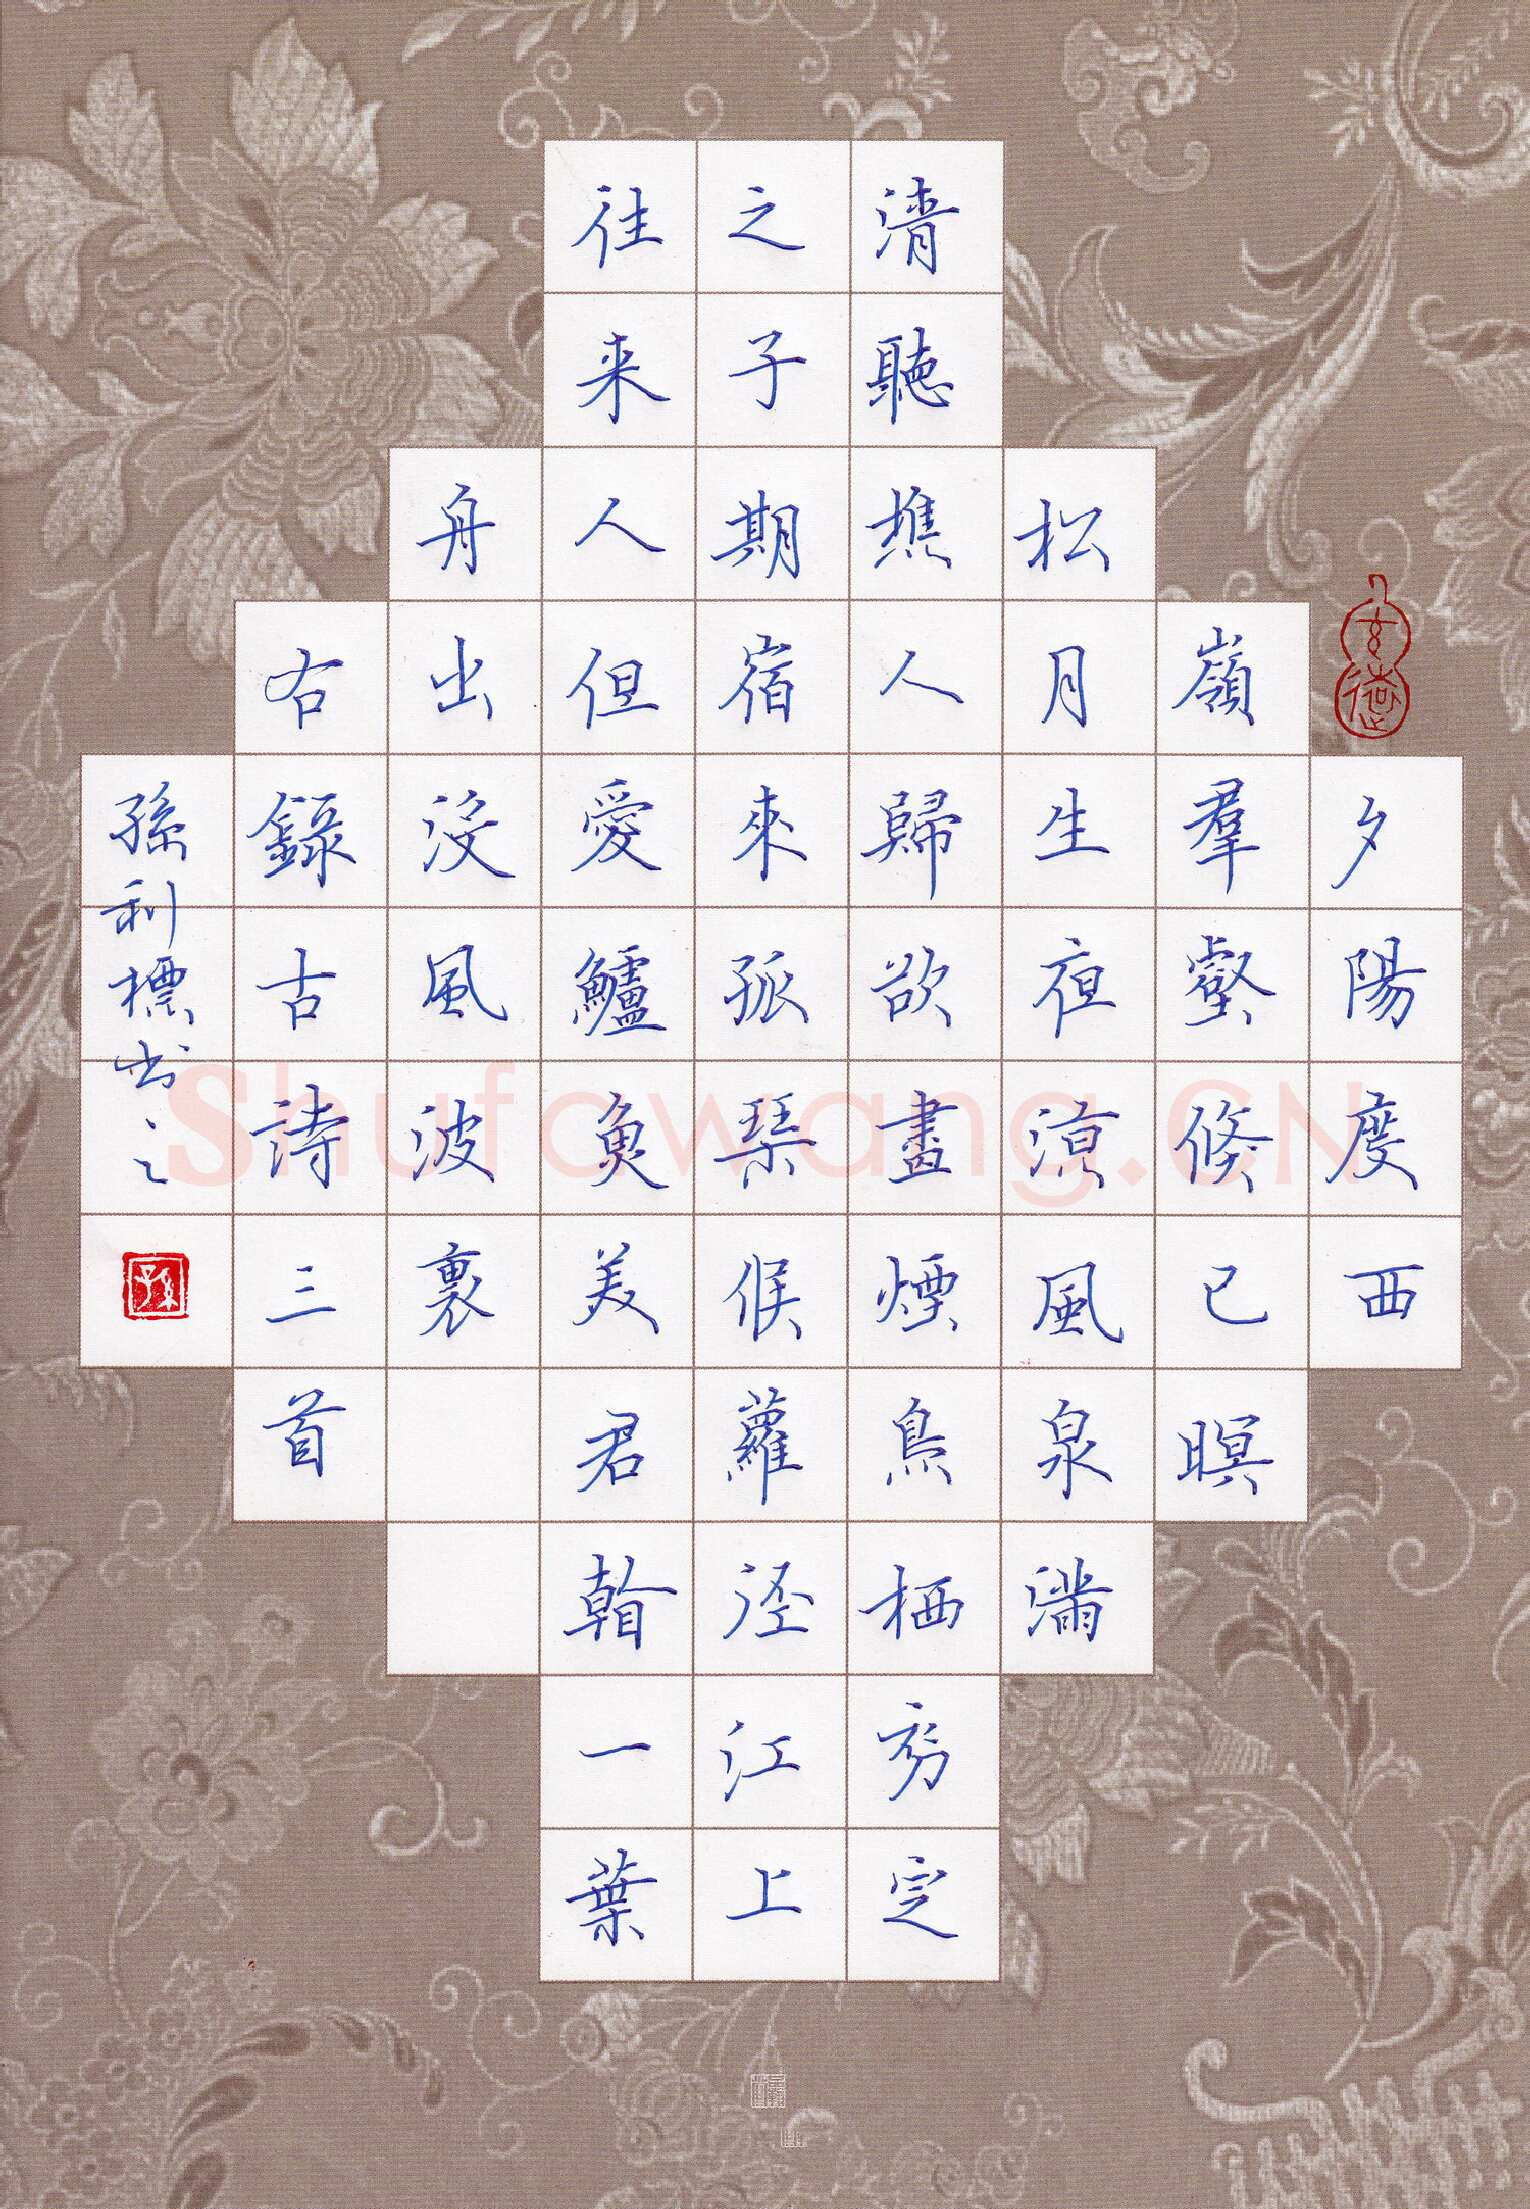 夕陽度西
嶺羣壑倏已暝
松月生夜涼風泉滿
清聽樵人歸欲盡煙鳥栖初定
之子期宿來孤琴候蘿径江上
往来人但愛鱸魚美君看一葉
舟出沒風波裏
右錄古詩三首
孫利標书之
Shufawang.CN